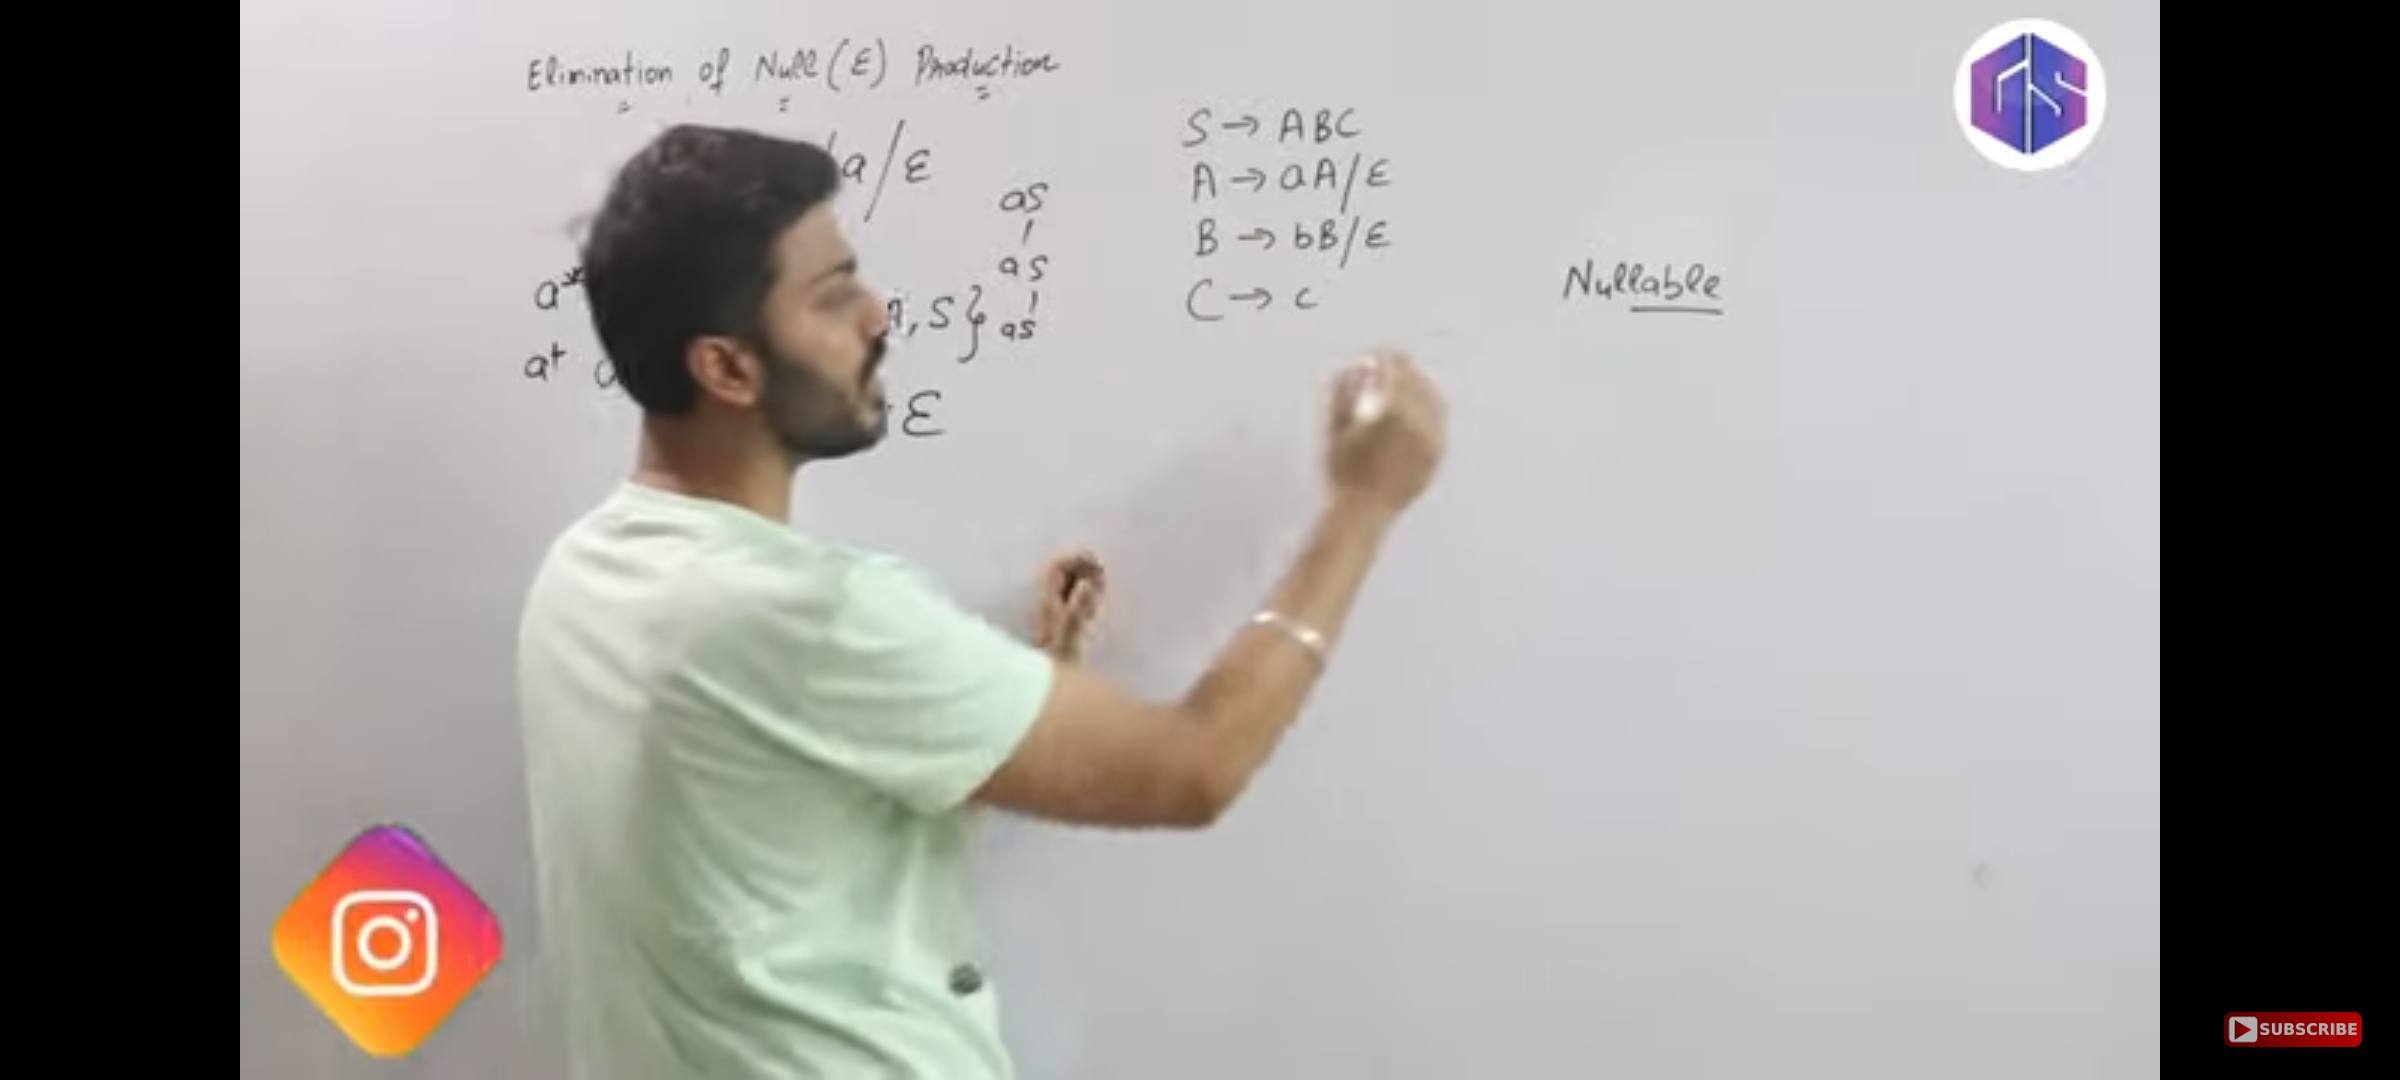 Elimination of Null (ε) Production
a/ε
aS
as
as
a*
, S}
a+
ε
S → ABC
A → aA/ε
B → bB/ε
C → c
Nullable
GS
SUBSCRIBE